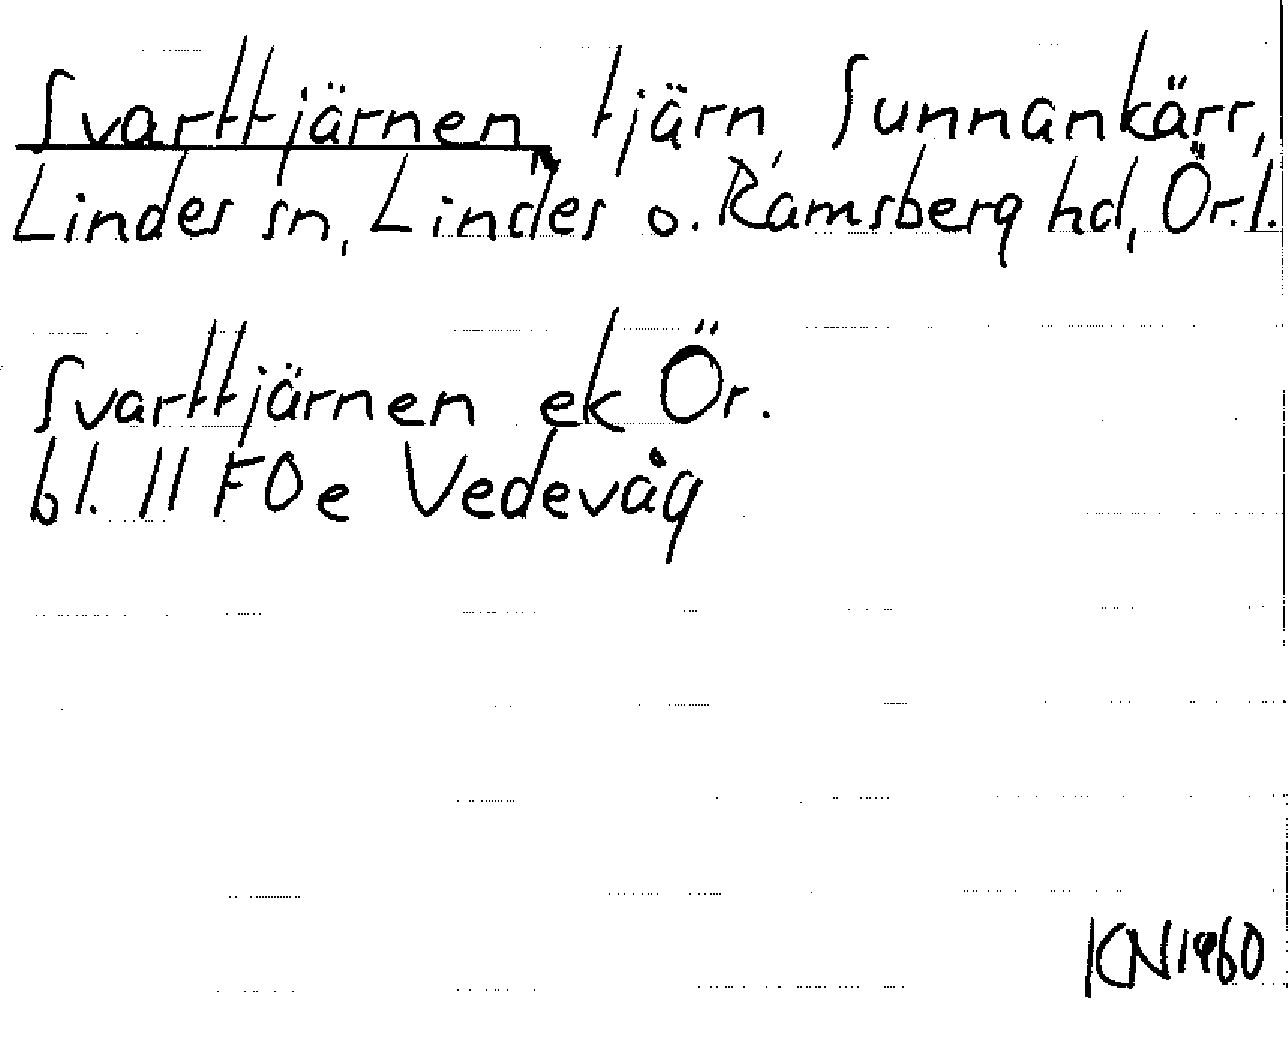 Svarttjärnen, tjärn, Sunnankärr,
Lindes sn, Lindes o. Ramsberg hd, Ör.l.
Svarttjärnen ek Ör.
bl. 11 FOe Vedevåg
KN1960